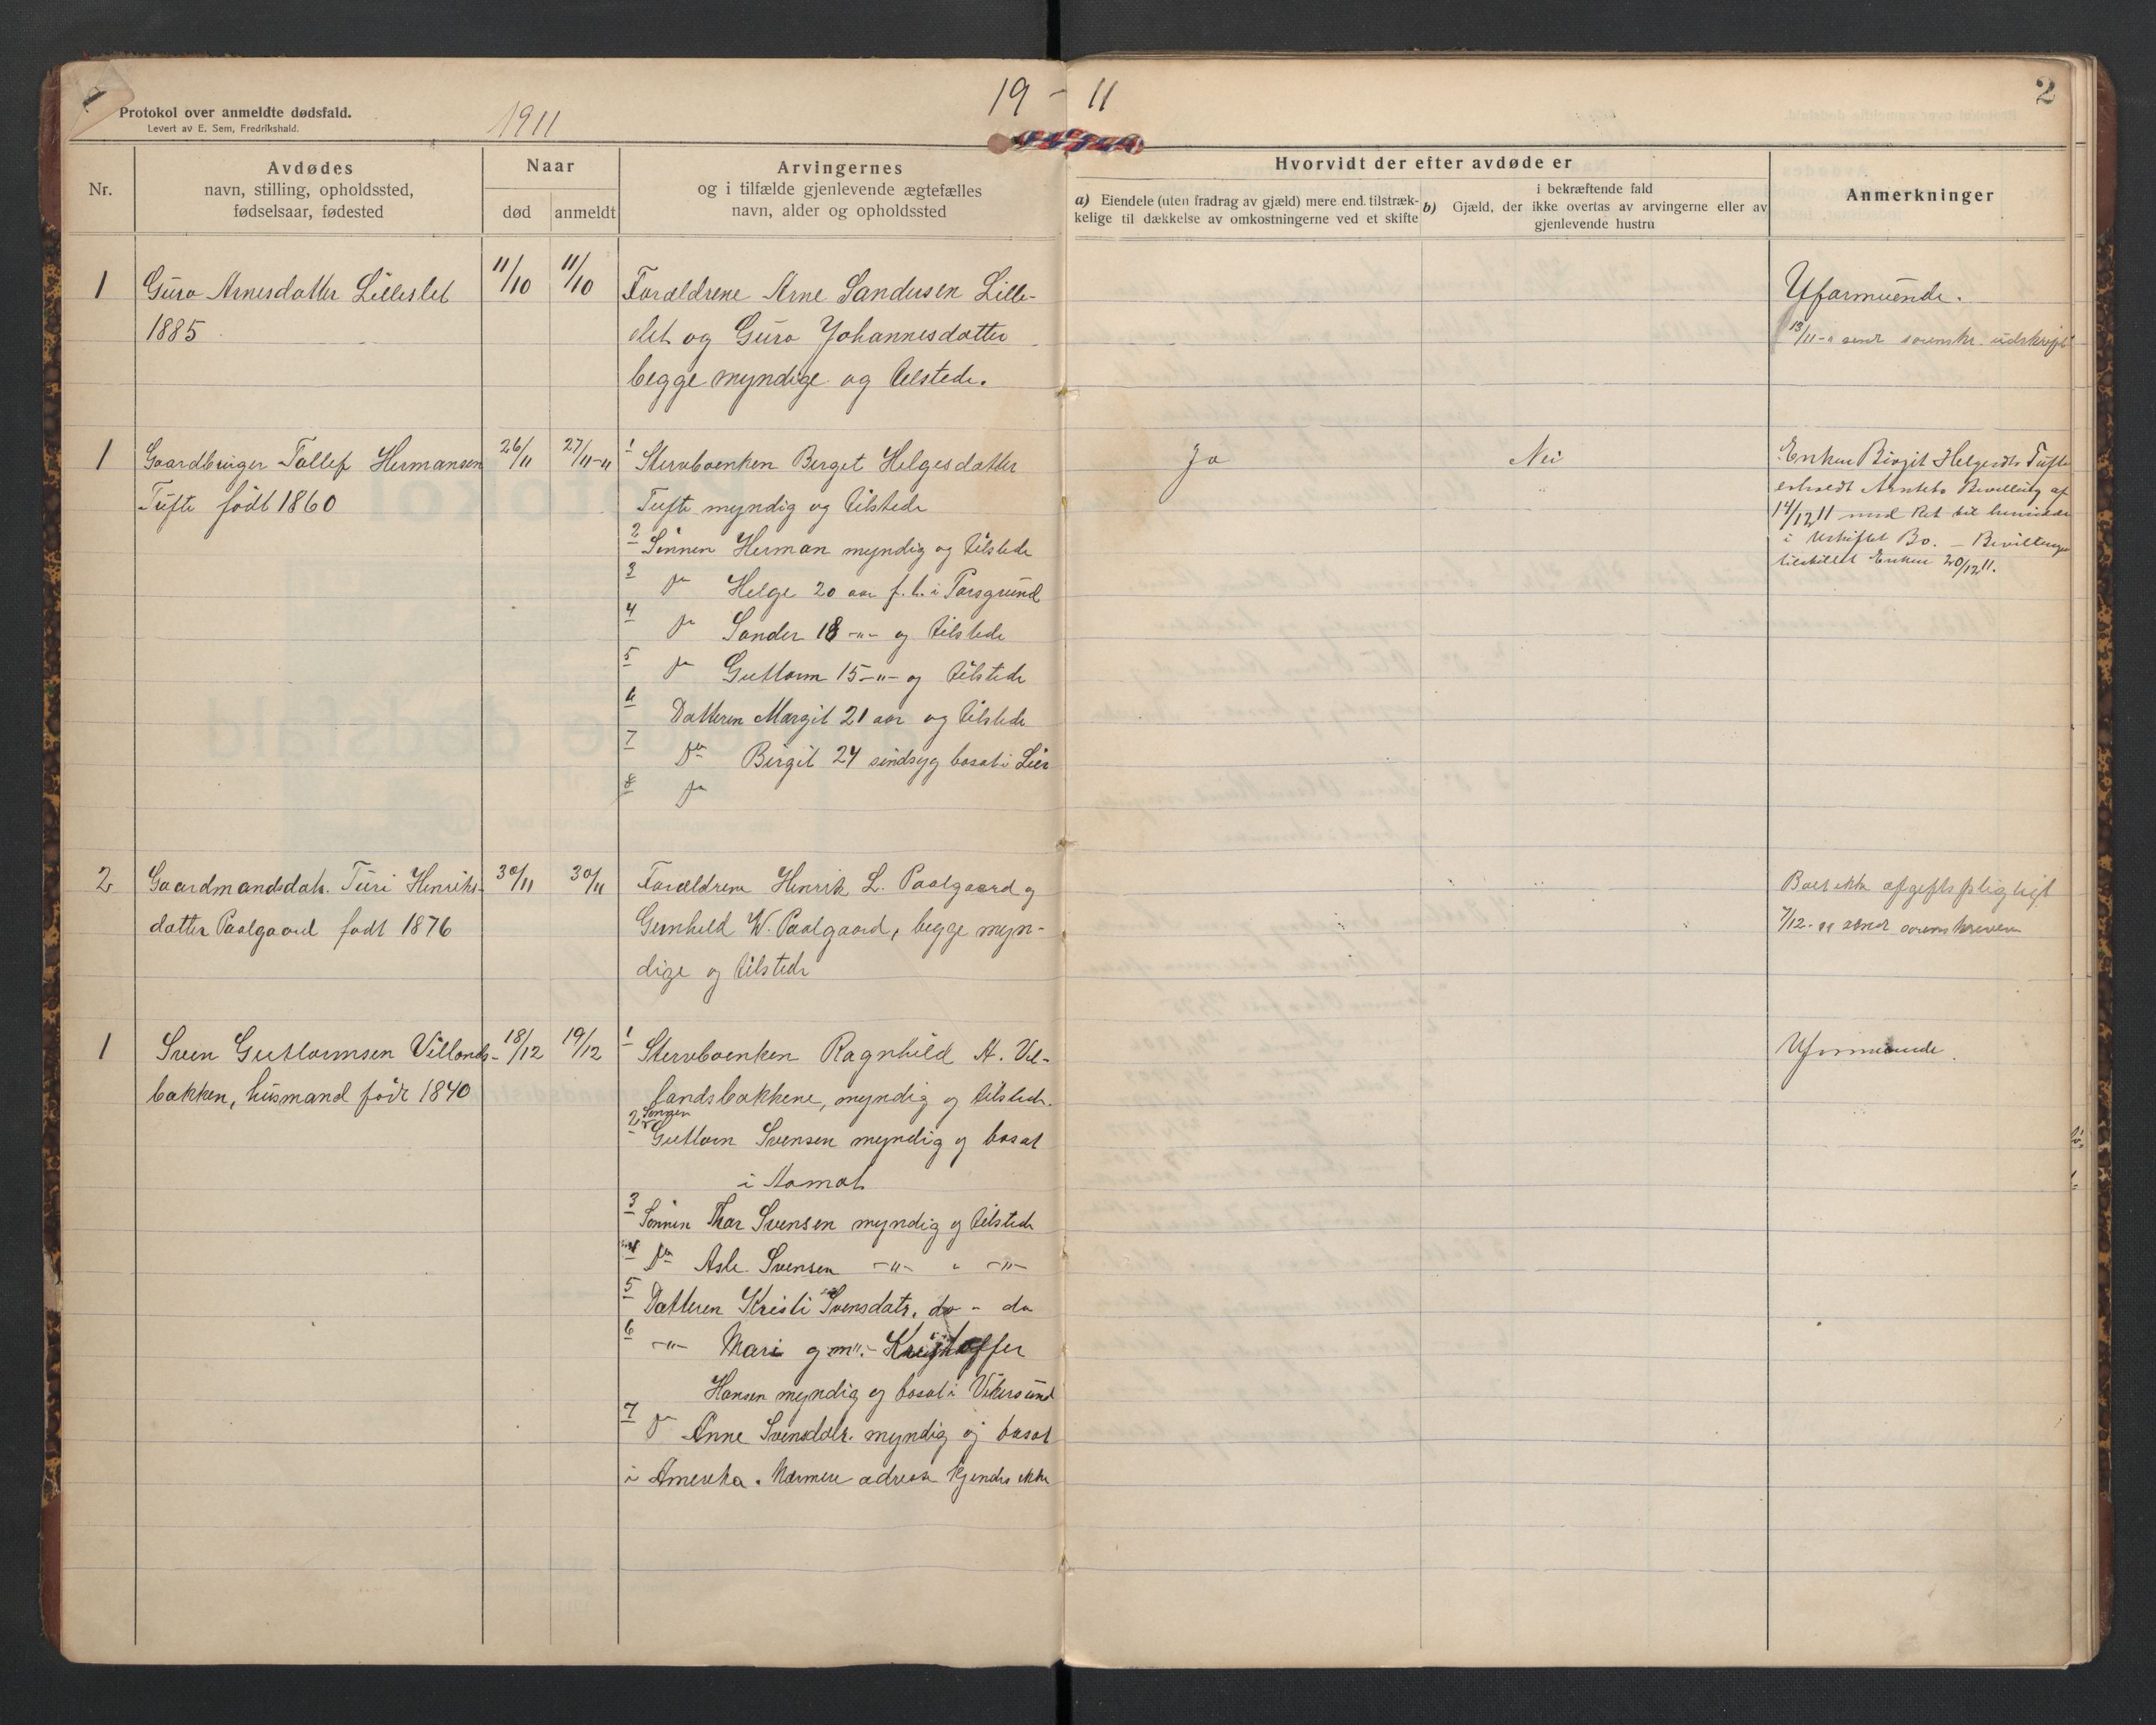 19 - 11
2
Protokol over anmeldte dødsfald.
Levert av E. Sem, Fredrikshald.
1911
Nr.
Avdødes
navn, stilling, opholdssted,
fødselsaar, fødested
Naar
død
anmeldt
Arvingernes
og i tilfælde gjenlevende ægtefælles
navn, alder og opholdssted
Hvorvidt der efter avdøde er
a) Eiendele (uten fradrag av gjæld) mere end tilstræk-
kelige til dækkelse av omkostningerne ved et skifte
i bekræftende fald
b) Gjæld, der ikke overtas av arvingerne eller av
gjenlevende hustru
Anmerkninger
1
Guro Arnesdatter Lilleslet
1885
11/10
11/10
Forældrene Arne Sandersen Lille-
slet og Guro Johannesdatter
begge myndige og tilstede.
Uformuende.
13/11-11 sendt sorenskr. udskrift
1
Gaardbruger Tollef Hermansen
Tufte født 1860
26/11
27/11-11
1 Stervboenken Berget Helgesdatter
Tufte myndig og tilstede
2 Sønnen Herman myndig og tilstede
3 do Helge 20 aar f. t. i Porsgrund
4 do Sander 18 -"- og tilstede
5 do Guttorm 15 -"- og tilstede
6 Datteren Margit 21 aar og tilstede
7 do Birgit 24 sindsyg bosat i Lier
8 do
Ja
Nei
Enken Birgit Helgesdtr Tufte
erholdt Amtets Bevilling af
14/12 11 med Ret til hensidde
i uskiftet Bo. - Bevillingen
tilstillet Enken 20/12 11.
2
Gaardmandsdatr. Turi Henriks-
datter Paalgaard født 1876
30/11
30/11
Forældrene Henrik L. Paalgaard og
Gunhild W. Paalgaard, begge myn-
dige og tilstede
Boet ikke afgiftspligtigt
7/12-11 sendt sorenskriveren
1
Sven Guttormsen Villands-
bakken, husmand født 1840
18/12
19/12
1 Stervboenken Ragnhild A. Vil-
landsbakkene, myndig og tilstede.
2 Sønnen Guttorm Svensen myndig og bosat
i Aamot
3 Sønnen Thor Svensen myndig og tilstede
4 do Asle Svensen -"- " -"-
5 Datteren Kristi Svensdatr. do - do
6 -"- Mari g.m. Kristoffer
Hansen myndig og bosat i Vikersund
7 do Anne Svensdatr. myndig og bosat
i Amerika. Nærmere adresse kjendes ikke
Uformuende.